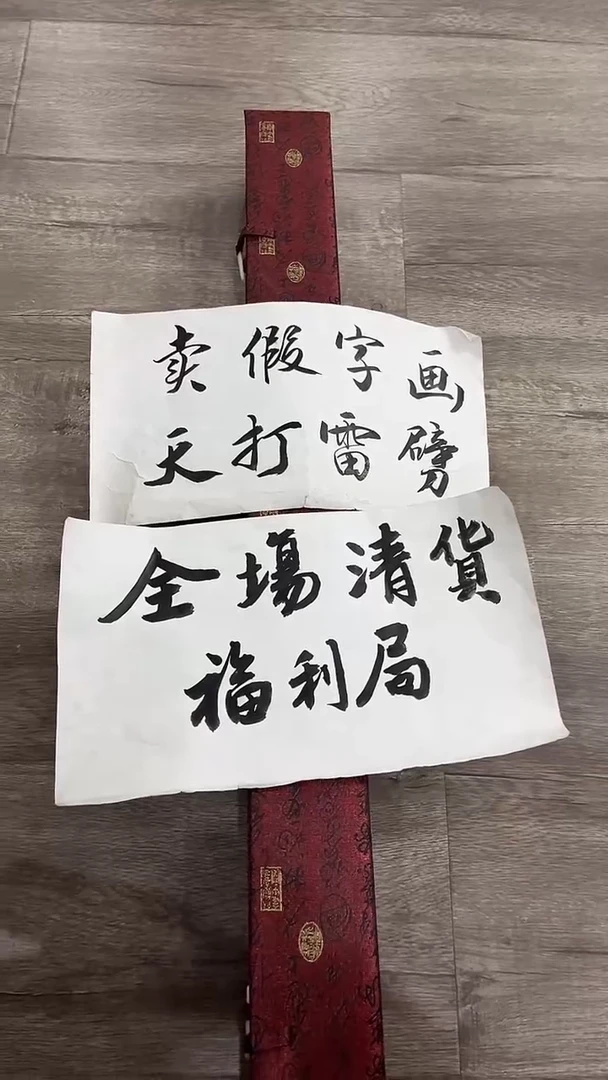 卖假字画
天打雷劈
全場清貨
福利局